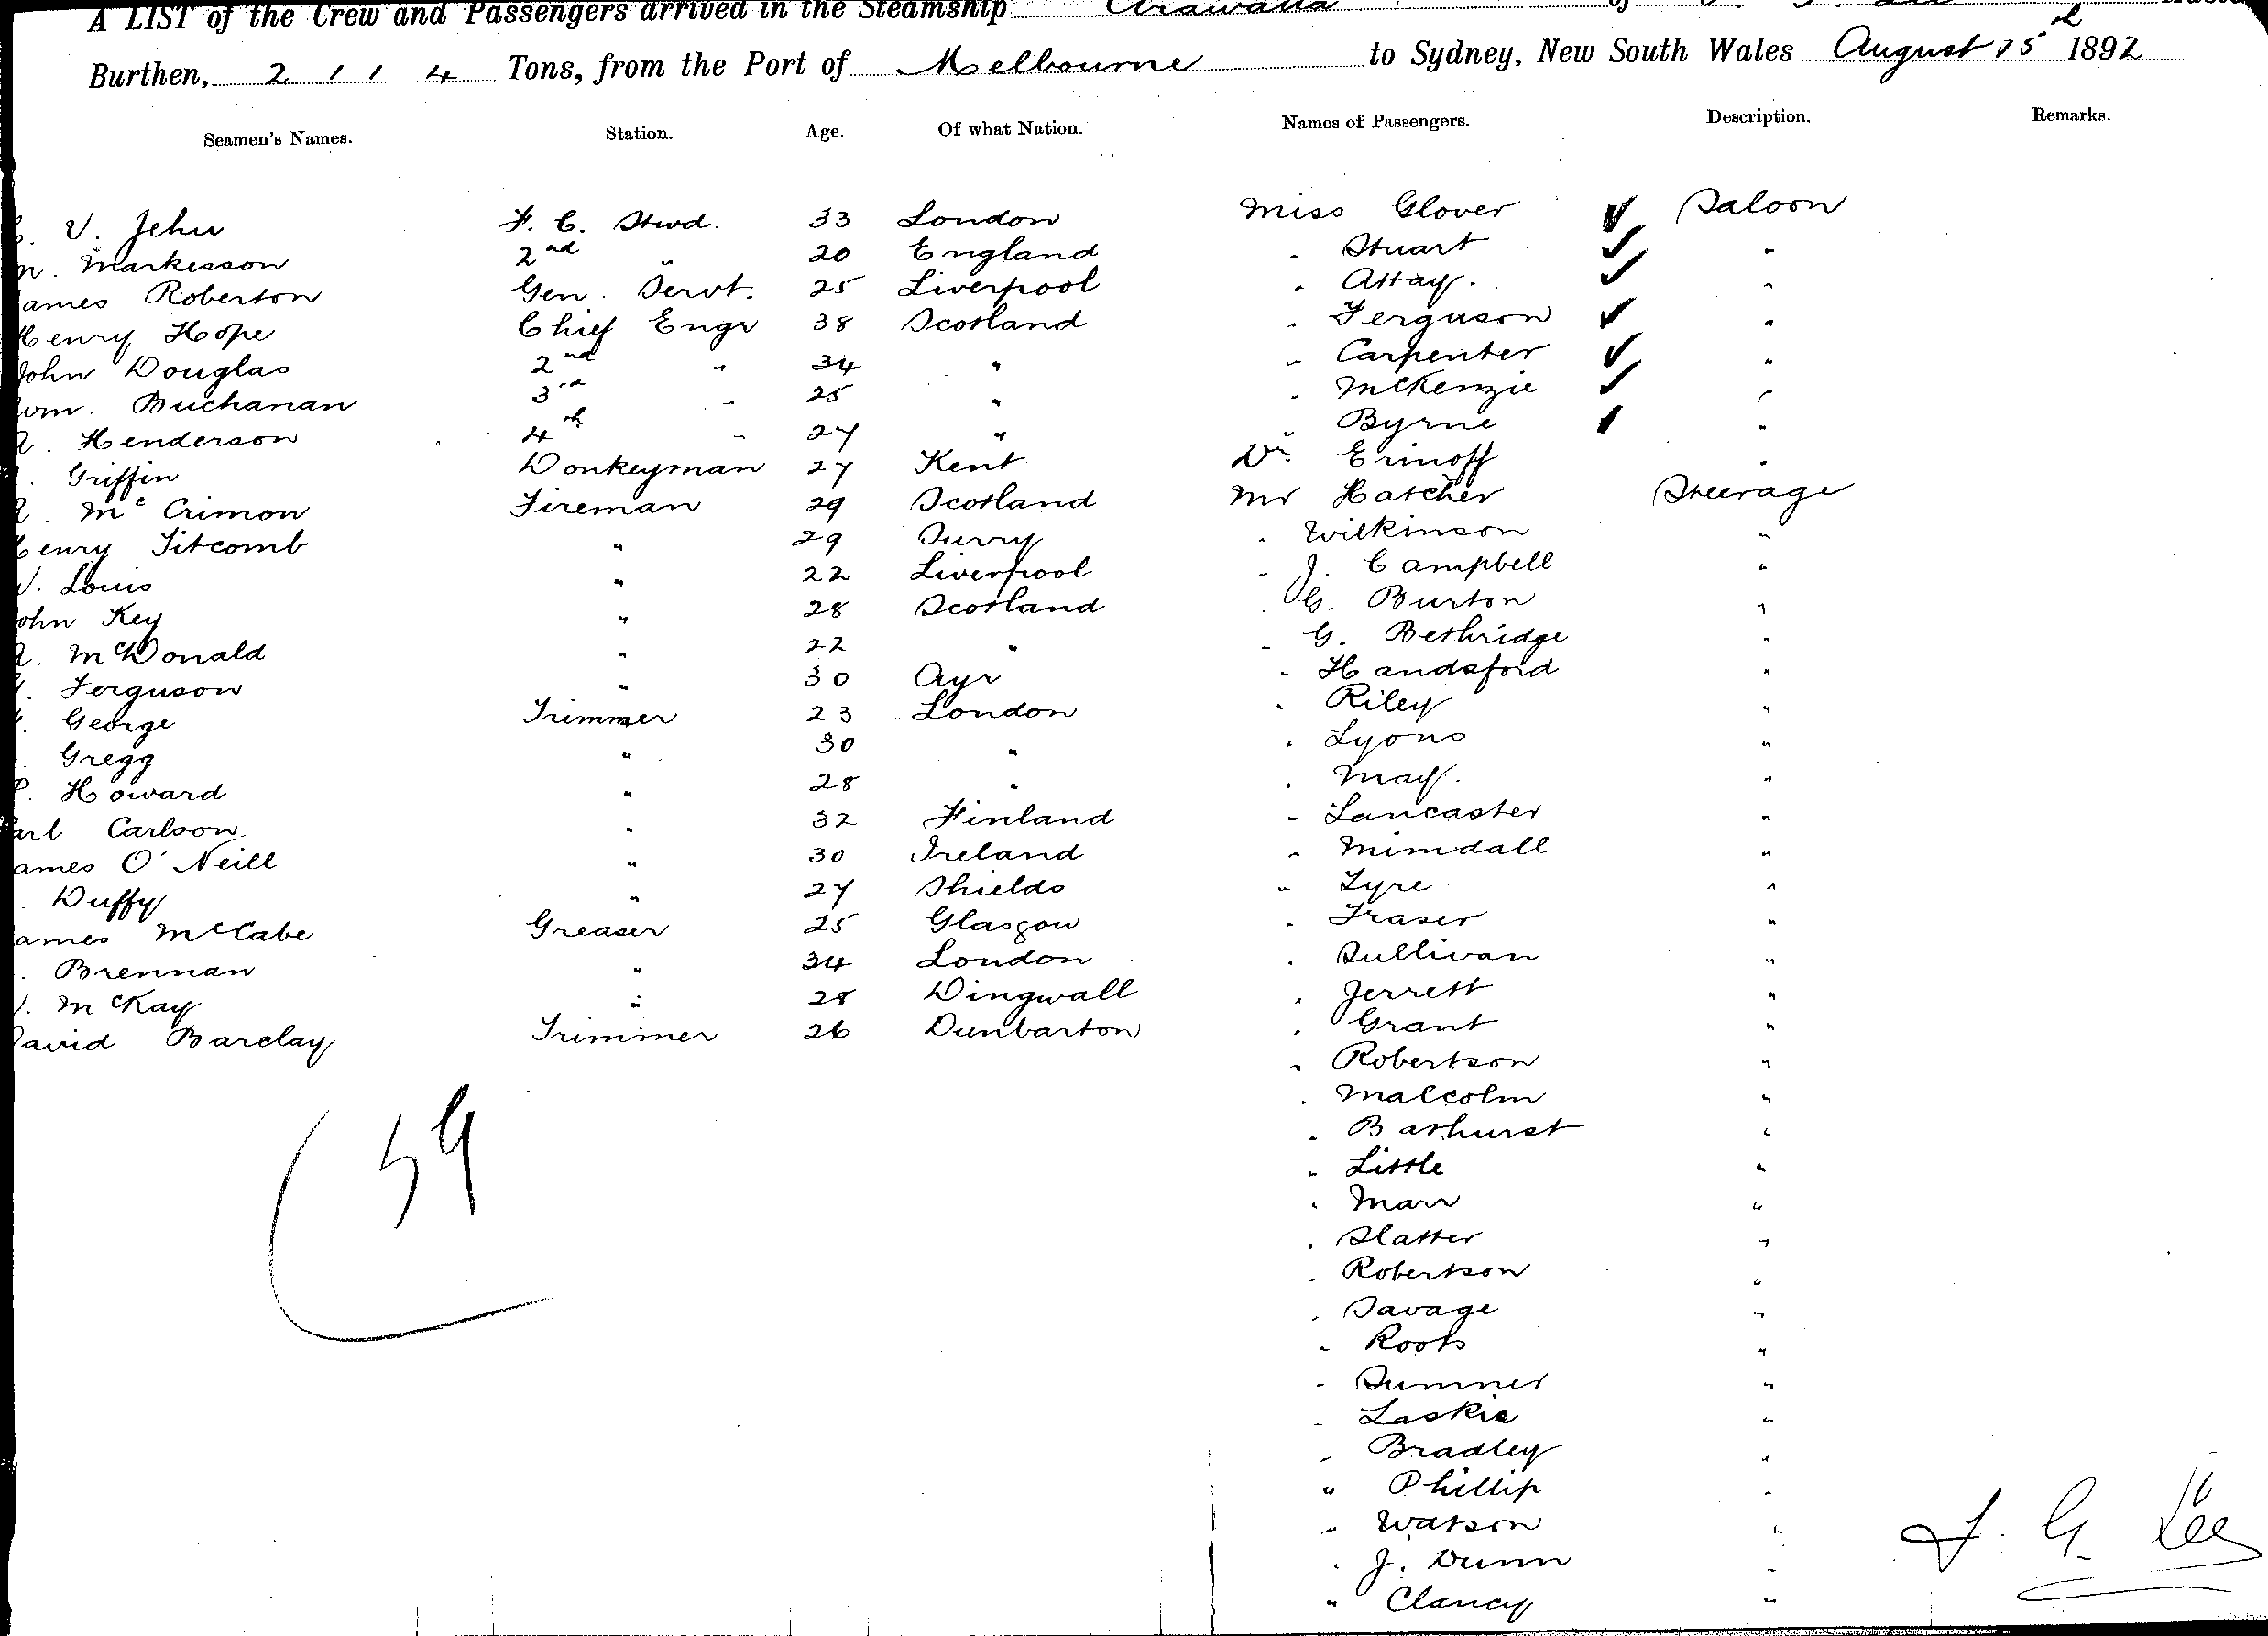 A LIST of the Crew and Passengers arrived in the Steamship Arawatta of
Burthen, 2114 Tons, from the Port of Melbourne to Sydney, New South Wales August 15th 1892
Seamen's Names. Station. Age. Of what Nation. Names of Passengers. Description. Remarks.
V. Jehu F. C. Stwd. 33 London Miss Glover ✓ Saloon
Markesson 2nd " 20 England " Stuart ✓ "
ames Roberton Gen. Servt. 25 Liverpool " Attay. ✓ "
Henry Hope Chief Engr 38 Scotland " Ferguson ✓ "
John Douglas 2nd " 34 " " Carpenter ✓ "
Wm. Buchanan 3rd " 25 " " McKenzie ✓ "
Henderson 4th " 27 " " Byrne ✓ "
Griffin Donkeyman 27 Kent Dr. Erinoff "
McCrimon Fireman 29 Scotland Mr Hatcher Steerage
Henry Titcomb " 29 Surry " Wilkinson "
Louis " 22 Liverpool " J. Campbell "
John Key " 28 Scotland " G. Burton "
McDonald " 22 " " G. Bethridge "
Ferguson " 30 Ayr " Handsford "
George Trimmer 23 London " Riley "
Gregg " 30 " " Lyons "
P. Howard " 28 " " May. "
arl Carlson " 32 Finland " Lancaster "
ames O'Neill " 30 Ireland " Mimdall "
Duffy " 27 Shields " Tyre "
ames McCabe Greaser 25 Glasgow " Fraser "
Brennan " 34 London " Sullivan "
McKay " 28 Dingwall " Jerrett "
David Barclay Trimmer 26 Dunbarton " Grant "
" Robertson "
" Malcolm "
" Bathurst "
" Little "
" Marr "
" Slatter "
" Robertson "
" Savage "
" Roots "
" Sumner "
" Laskie "
" Bradley "
" Phillip "
" Watson "
" J. Dunn "
" Clancy "
59
J. G. Lee